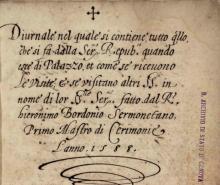 Diurnale nel quale si contiene tutto q̃llo
che si fa dalla Ser.ma Repub. quando
esce di Palazzo, et come se riceuono
le Visite, et se visitano altri SS. in
nome di lor SS.me Ser.me fatto dal R.
hieronimo Bordonio Sermonetano,
Primo Mastro di Cerimonie
L'anno. 1588.
R. ARCHIVIO DI STATO DI GENOVA